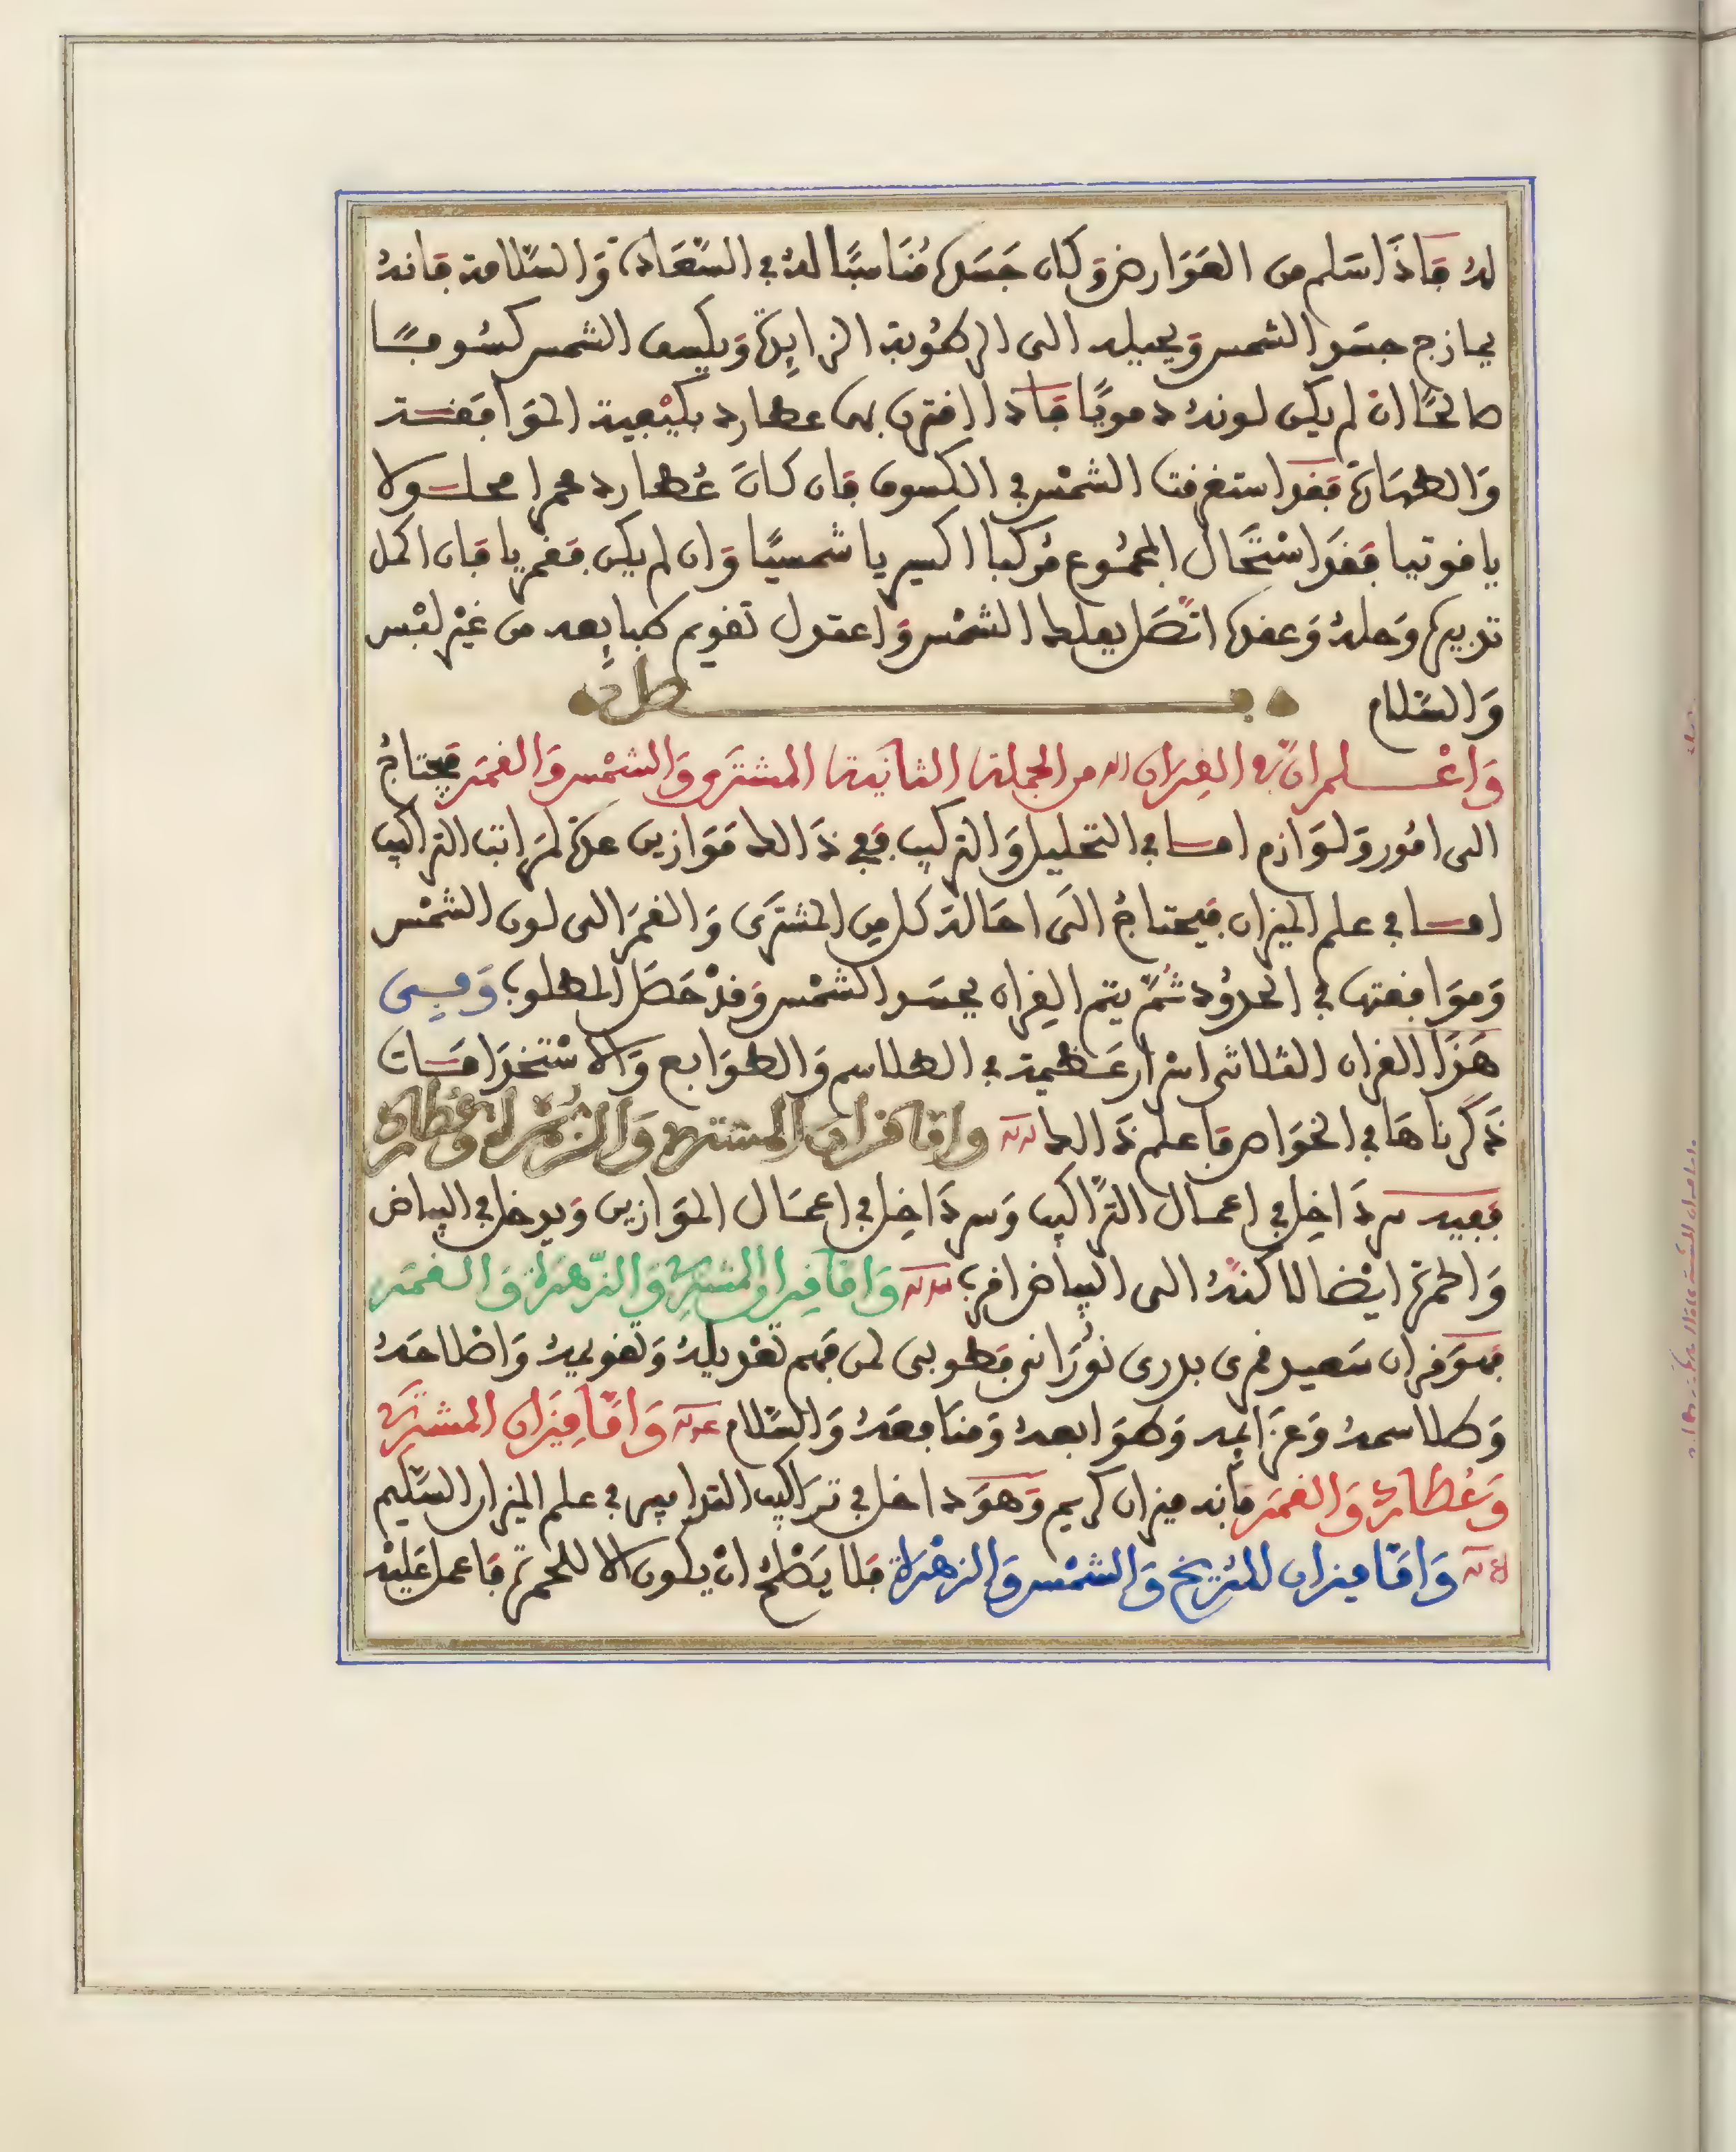 له فاذا سلم من العوارض وكان جسده مناسبا له في السعادة والسلامة فانه
يمازج جسد الشمس ويحيله الى الرطوبة الزايدة ويكسف الشمس كسوفا
صالحا ان لم يكن لونه دمويا فاذا اقترن به عطارد بكيفية الموافقة
والطهارة فقد استغرقت الشمس في الكسوف فان كان عطارد محمرا محلولا
ياقوتيا فقد استحال المجموع مركبا اكسيريا شمسيا وان لم يكن فقمريا فان اكمل
تدبيره وحله وعقده اتصل بفلك الشمس واعتدل تقويم طبايعه من غير لبس
والسلام
واعلم ان في القران من الجملة الثانية المشترى والشمس والقمر فيحتاج
الى امور ولوازم امسا في التحليل والتركيب ففي ذالك موازين عدة لمراتب التراكيب
امسا في علم الميزان فيحتاج الى احالة كل من المشترى والقمر الى لون الشمس
وموافقتها في الحدود ثم يتم القران بجسد الشمس وقد حصل المطلوب وفى
هذا القران الثلاثي اسرار عظيمة في الطلاسم والطوابع والاستخدامات
ذكرناها في الخواص فاعلم ذالك واما قران المشترى والزهرة وعطارد
ففيه سر داخل في اعمال التراكيب وسر داخل في اعمال الموازين ويدخل في البياض
والحمرة ايضا لاكنه الى البياض اقرب واما قران المشترى والزهرة والقمر
فهو قران سعيد قمرى بدرى نوراني فطوبى لمن فهم تعديله وتقويمه واصلاحه
وطلاسمه وعزايمه وطوابعه ومنافعه والسلام واما قران المشترى
وعطارد والقمر فانه ميزان كريم وهو داخل في تراكيب التدابير في علم الميزان السليم
واما ميزان المريخ والشمس والزهرة فلا يصلح ان يكون الا للحمرة فاعمل عليه